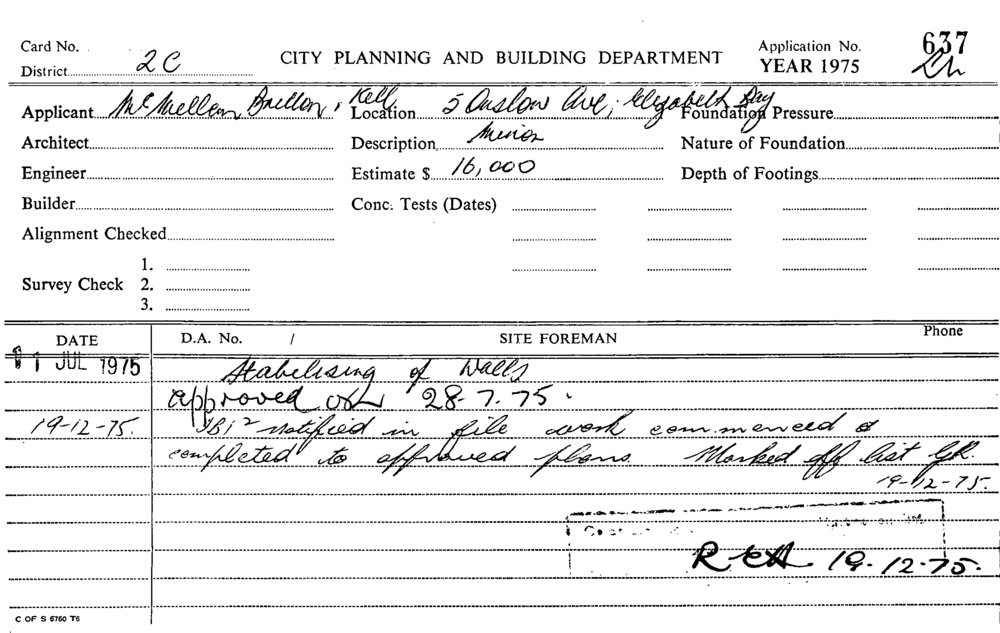 Card No.
CITY PLANNING AND BUILDING DEPARTMENT
Application No. 637
District 2C
YEAR 1975
Applicant McMellan, Britton, Kell
Location 5 Onslow Ave, Elizabeth Bay
Foundation Pressure
Architect
Description Minor
Nature of Foundation
Engineer
Estimate $ 16,000
Depth of Footings
Builder
Conc. Tests (Dates)
Alignment Checked
Survey Check
1.
2.
3.
DATE
D.A. No. /
SITE FOREMAN
Phone
1 JUL 1975
Stabilising of Walls
approved 28-7-75.
19-12-75. notified in file work commenced &
completed to approved plans. Marked off list
19-12-75.
19-12-75.
C OF S 6760 T6